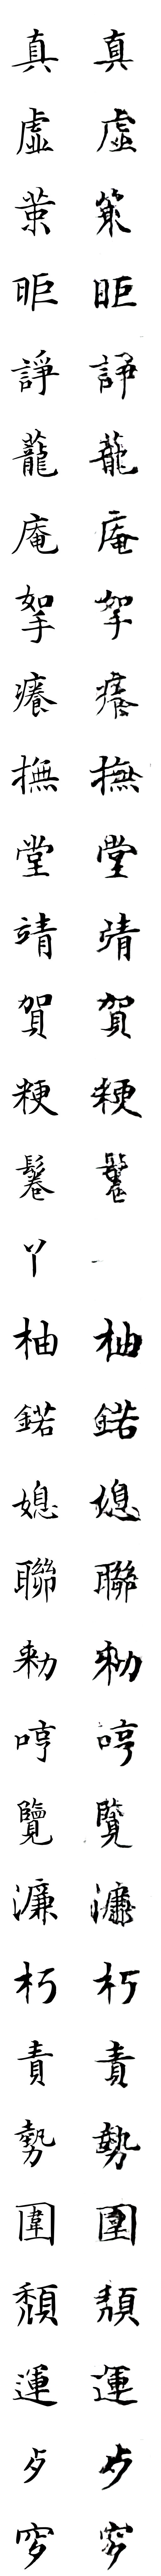 真 真
虛 虛
策
昛 昛
諍 諍
蘢 蘢
庵 庵
挐 挐
癢 癢
撫 撫
堂 堂
靖 靖
賀 賀
粳 粳
鬈 鬈
丫
柚 柚
鍩 鍩
媳
聯 聯
勑 勑
哼 哼
覽 覽
濂 濂
朽 朽
責 責
勢 勢
圍 圍
頹 頹
運 運
歺 歺
穸 穸